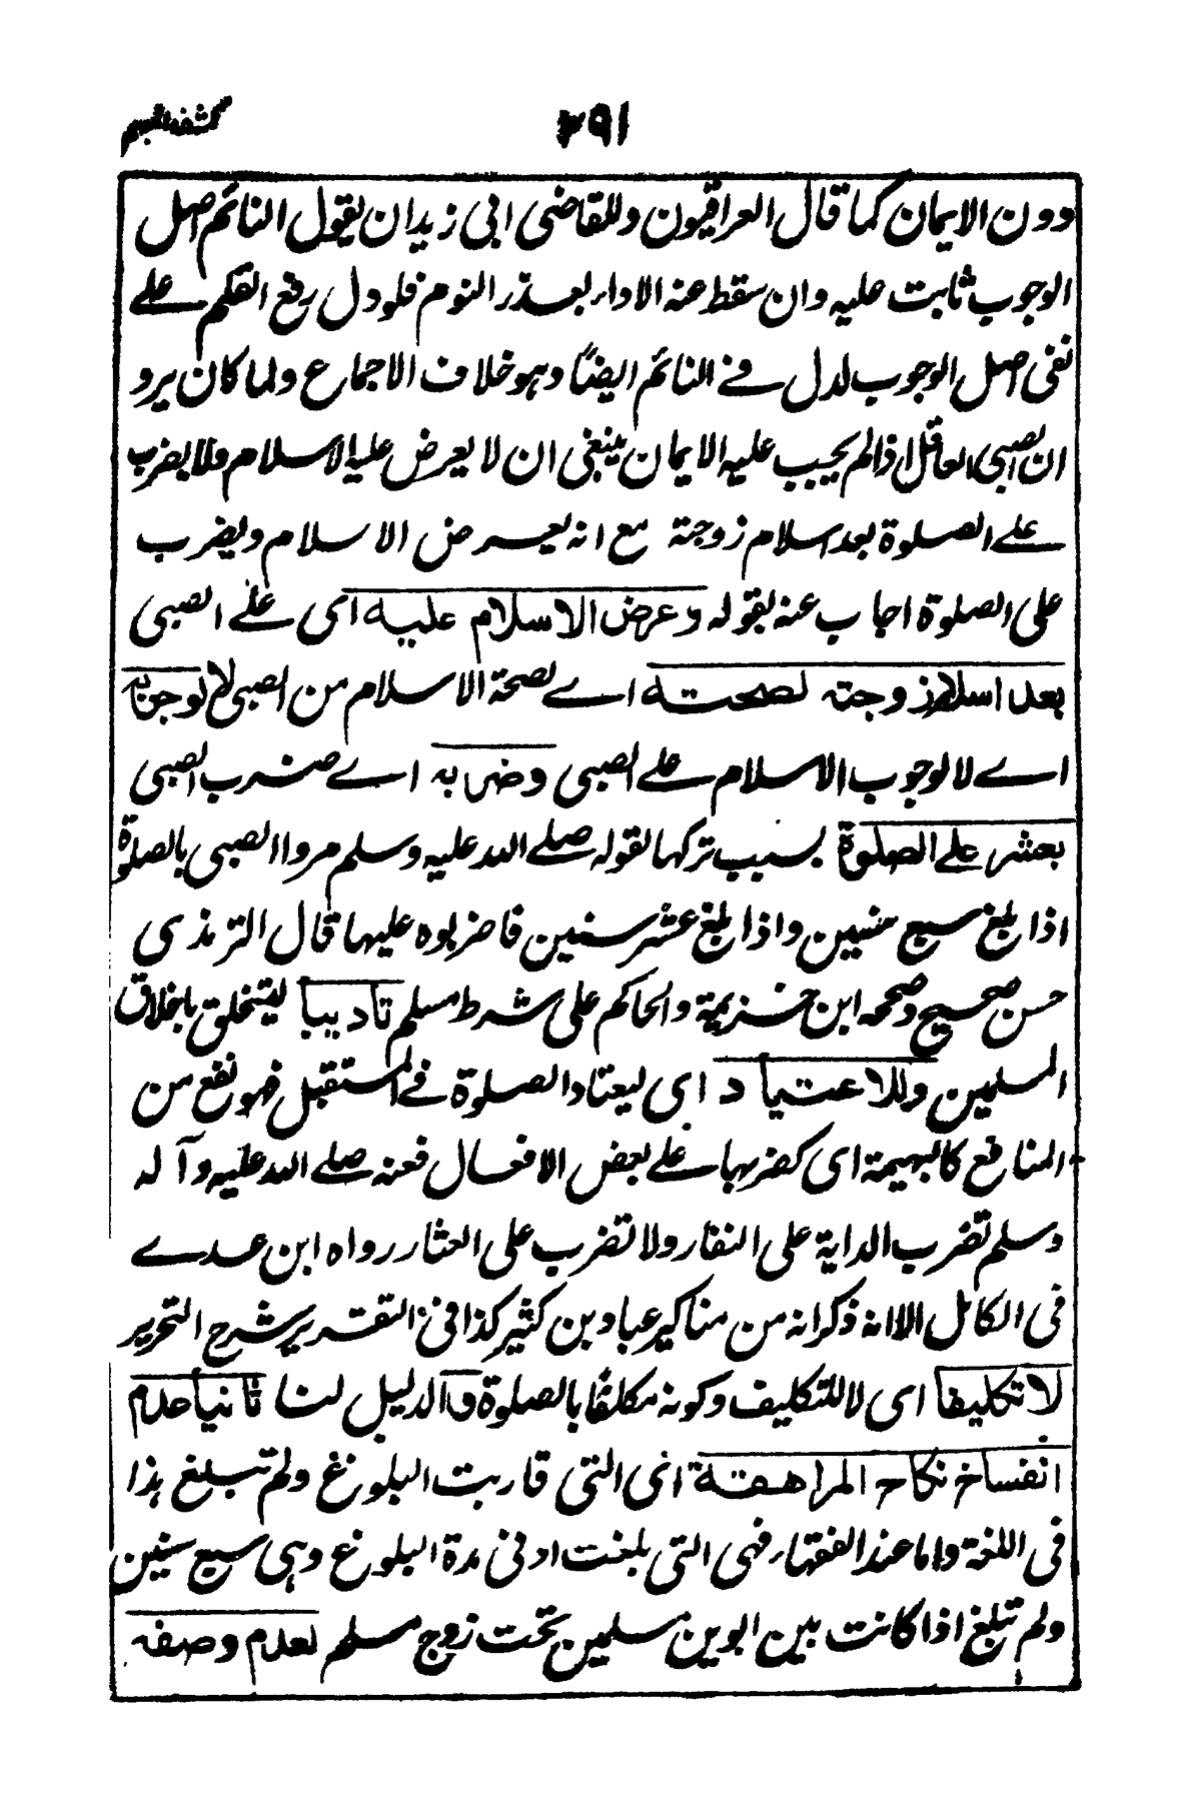 كشف المبهم
٢٩١
دون الايمان كما قال العراقيون وللقاضى ابى زيد ان يقول النائم اصل
الوجوب ثابت عليه وان سقط عنه الاداء بعذر النوم فلو دل رفع القلم على
نفى اصل الوجوب لدل فى النائم ايضًا وهو خلاف الاجماع ولما كان يرد
ان الصبى العاقل اذا لم يجب عليه الايمان ينبغى ان لا يعرض عليه الاسلام ولا يضرب
على الصلوة بعد اسلام زوجته مع انه يعرض الاسلام ويضرب
على الصلوة اجاب عنه بقوله وعرض الاسلام عليه اى على الصبى
بعد اسلام زوجته لصحته اے لصحة الاسلام من الصبى لا لوجوبه
اے لا لوجوب الاسلام على الصبى وضربه اے ضرب الصبى
بعشر على الصلوة بسبب تركها لقوله صلى الله عليه وسلم مروا الصبى بالصلوة
اذا بلغ سبع سنين واذا بلغ عشر سنين فاضربوه عليها قال الترمذى
حسن صحيح وصححه ابن خزيمة والحاكم على شرط مسلم تاديبا ليتخلق باخلاق
المسلمين وللاعتياد اى ليعتاد الصلوة فى المستقبل فهو نفع من
المنافع كالبهيمة اى كضربها على بعض الافعال فعنه صلى الله عليه وآله
وسلم تضرب الدابة على النفار ولا تضرب على العثار رواه ابن عدے
فى الكامل الا انه ذكر انه من مناكير عباد بن كثير كذا فى التقرير شرح التحرير
لا تكليفا اى لا للتكليف وكونه مكلفًا بالصلوة والدليل لنا ثانيا عدم
انفساخ نكاح المراهقة اى التى قاربت البلوغ ولم تبلغ هذا
فى اللغة واما عند الفقهاء فهى التى بلغت ادنى مدة البلوغ وهى سبع سنين
ولم تبلغ اذا كانت بين ابوين مسلمين تحت زوج مسلم لعدم وصفه